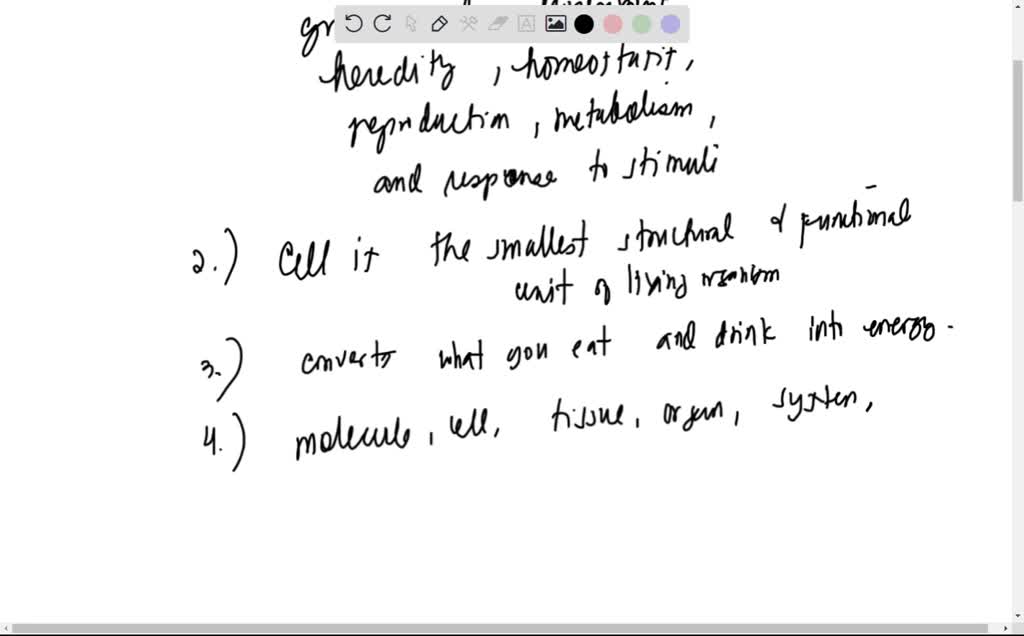 heredity, homeostasis,
reproduction, metabolism,
and response to stimuli
2.) Cell is the smallest structural & functional
unit of living organism
3.) converts what you eat and drink into energy.
4.) molecule, cell, tissue, organ, system,